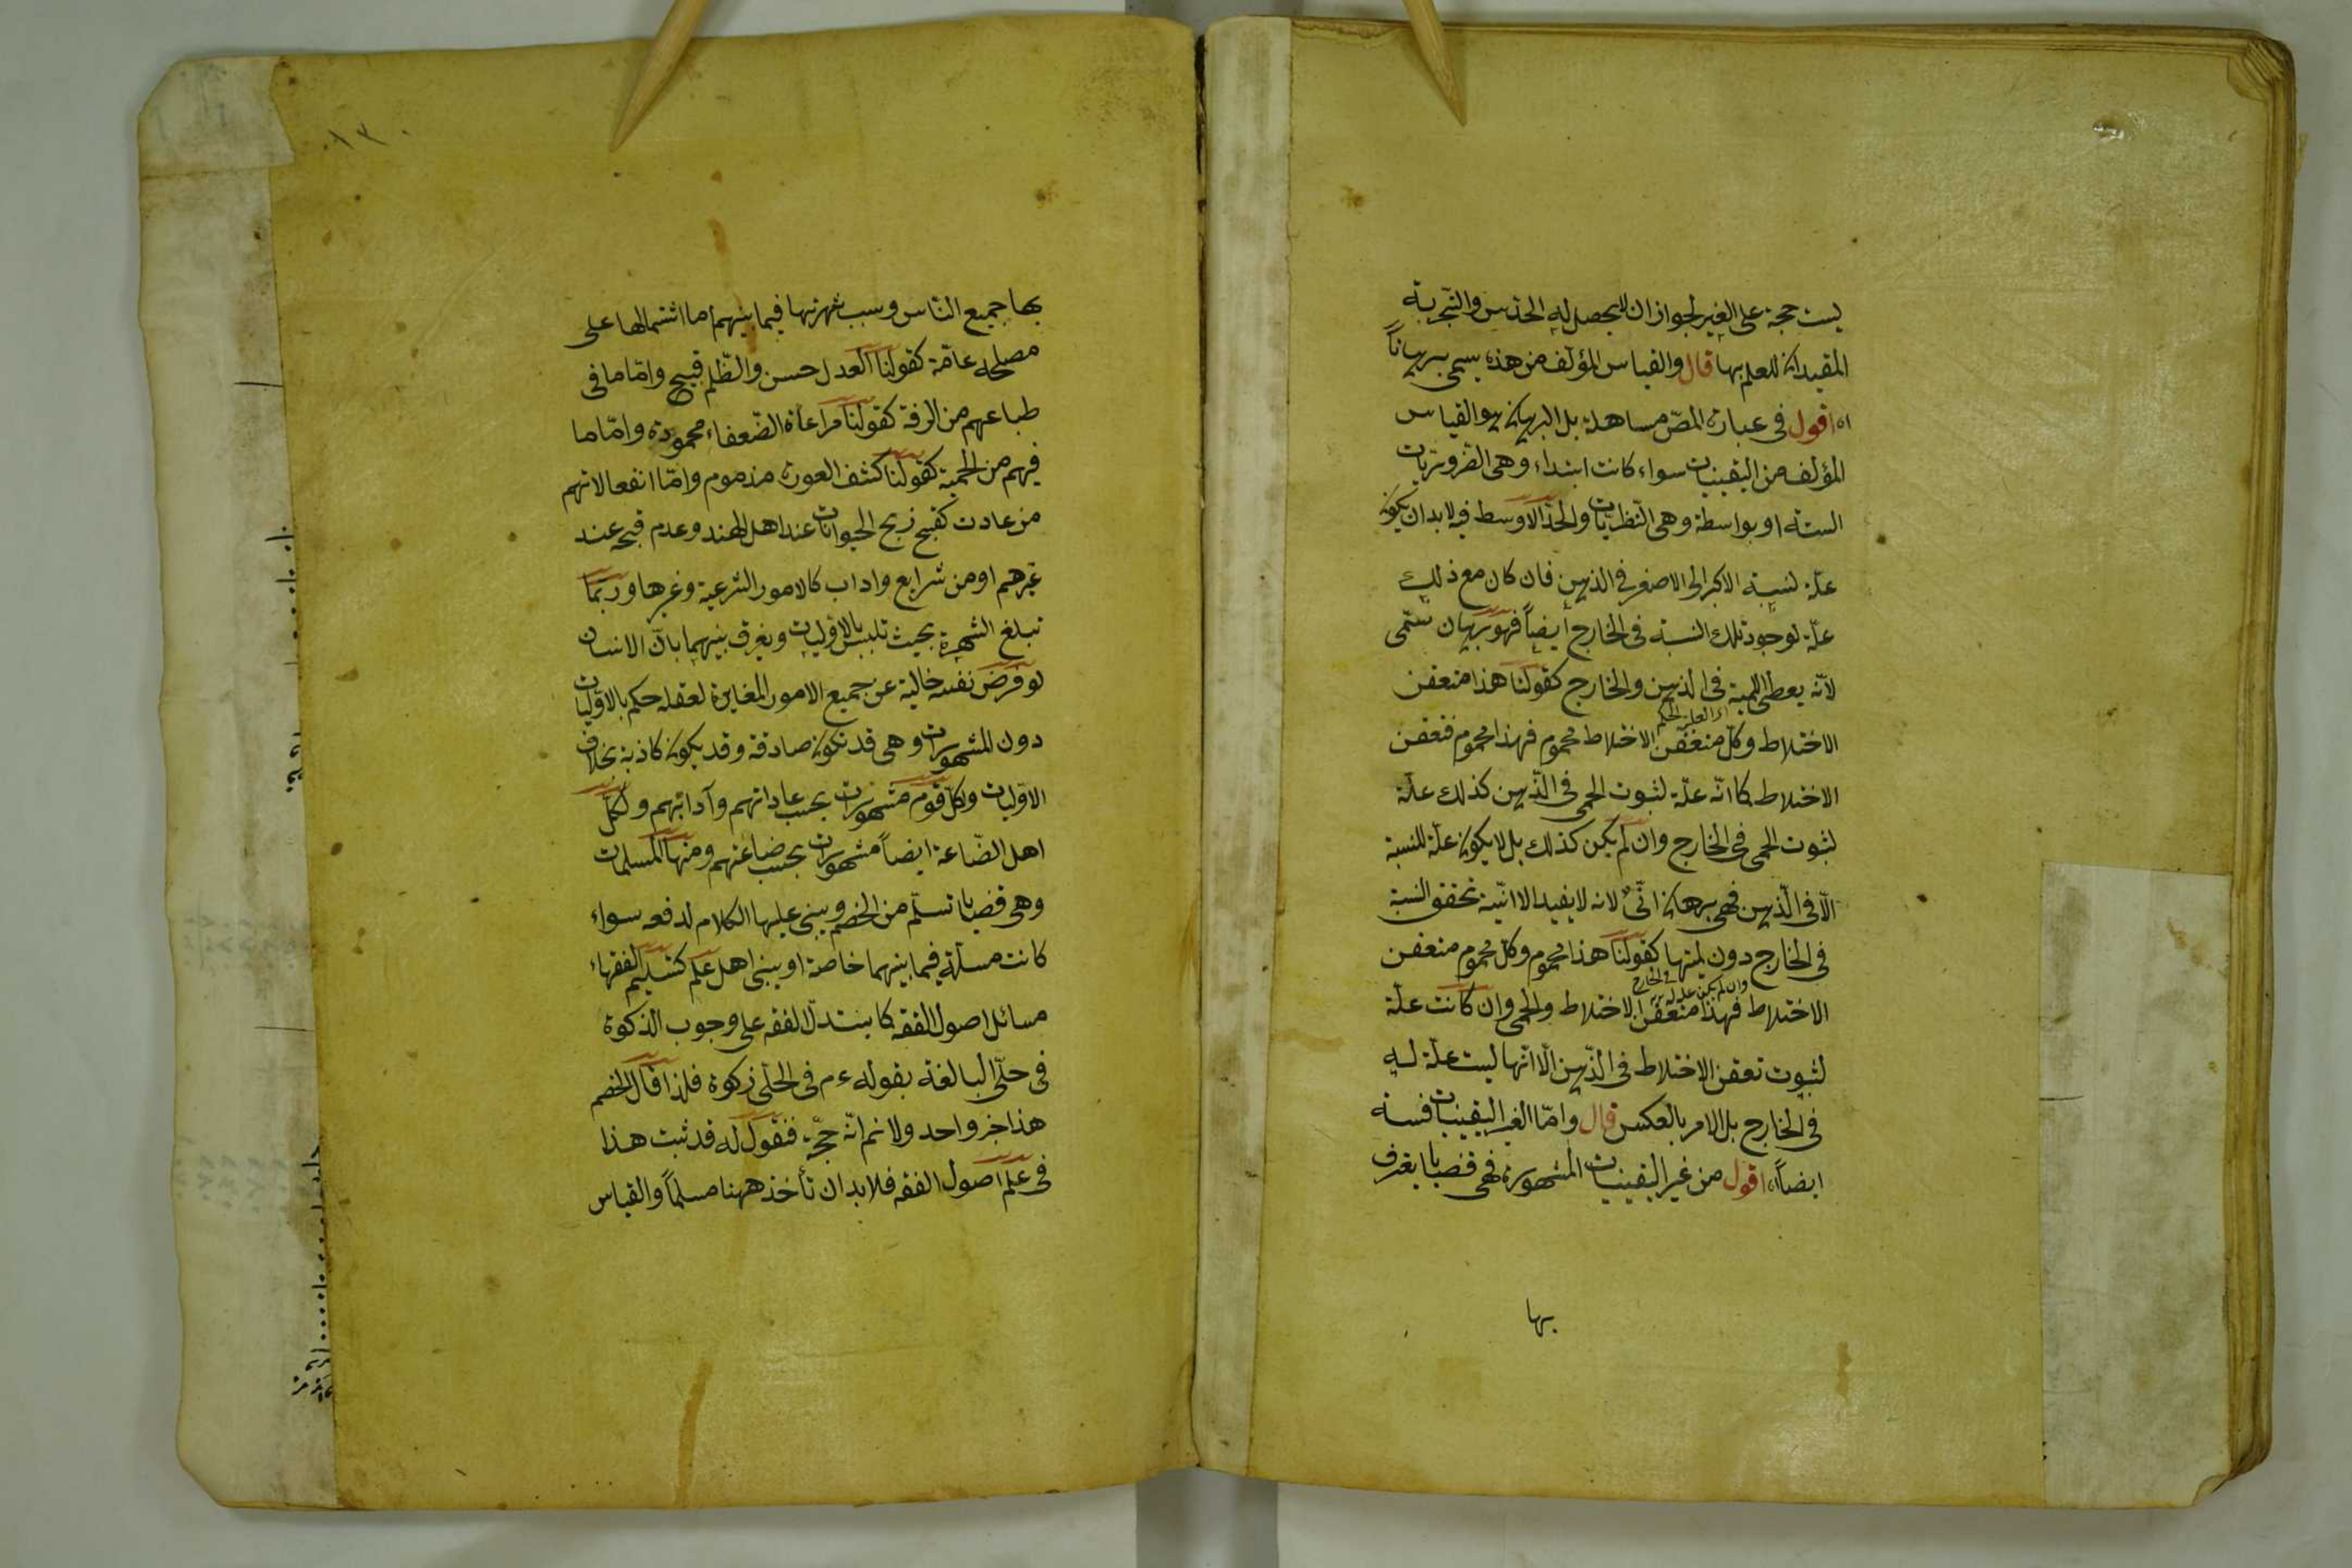 ليست حجة على الغير لجواز ان لا يحصل له الحدس والتجربة
المفيدان للعلم بها قال والقياس المؤلف من هذه يسمى برهاناً
اه اقول فى عبارة المصّ مساهلة بل البرهان هو القياس
المؤلف من اليقينيات سواء كانت ابتداء وهى الضروريات
الستة او بواسطة وهى النّظريات والحدّ الاوسط فيه لابد ان يكون
علّة لنسبة الاكبر الى الاصغر فى الذهن فان كان مع ذلك
علّة لوجود تلك النسبة فى الخارج أيضاً فهو برهان
لانّه يعطى اللمية فى الذهن والخارج كقولنا هذا متعفن
الاختلاط وكلّ متعفّن الاختلاط محموم فهذا محموم فتعفن
الاختلاط كما انّه علّة لثبوت الحمى فى الذّهن كذلك علّة
لثبوت الحمى فى الخارج وان لم يكن كذلك بل لا يكون علّة للنسبة
الّا فى الّذهن فهى برهان انّىٌ لانه لا يفيد الا انّية تحقق النسبة
فى الخارج دون لميّتها كقولنا هذا محموم وكل محموم متعفن
وان لم يكن علة له فى الخارج
الاختلاط فهذا متعفّن الاختلاط والحمى وان كانت علّة
لثبوت تعفن الاختلاط فى الذّهن الّا انّها ليست علّة له
فى الخارج بل الامر بالعكس قال وامّا الغير اليقينيات فستة
ايضاً اه اقول من غير اليقينيات المشهورة فهى قضايا يعترف
بها
بها جميع النّاس وسبب شهرتها فيما بينهم أما اشتمالها على
مصلحة عامّة كقولنا العدل حسن والظّلم قبيح وامّا ما فى
طباعهم من الرقة كقولنا مراعاة الضّعفاء محمودة وامّا ما
فيهم من الحمية كقولنا كشف العورة مذموم وامّا انفعالاتهم
من عادت كقبح ذبح الحيوانات عند اهل الهند وعدم قبحه عند
غيرهم او من شرايع واداب كالامور الشرعية وغيرها وربّما
تبلغ الشهرة بحيث تلبس بالاوّليات ويفرق بينهما بانّ الانسان
لو فرض نفسه خالية عن جميع الامور المغايرة لعقله حكم بالاوّليات
دون المشهورات وهى قد تكون صادقة وقد يكون كاذبة بخلاف
الاوّليات ولكل قوم مشهورات بحسب عاداتهم وآدابهم ولكلّ
اهل الصّناعة ايضاً مشهورات بحسب صناعتهم ومنها المسلمات
وهى قضايا تسلّم من الخصم ويبنى عليها الكلام لدفعه سواء
كانت مسلّمة فيما بينهما خاصة او بينى اهل علم كتسليم الفقهاء
مسائل اصول الفقه كما يستدلّ الفقه على وجوب الذكوة
فى حلّى البالغة بقوله ءم فى الحلّى زكوة فلذا قال الخصم
هذا خبر واحد ولا نم انّه حجّة فنقول له قد ثبت هذا
فى علم اصول الفقه فلا بد ان تأخذ ههنا مسلماً والقياس